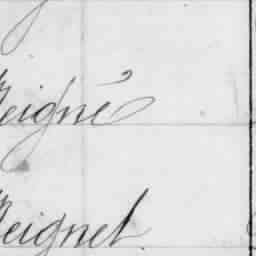 eigné
eignet